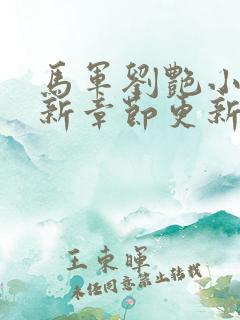 馬軍劉艷小
新章節更新
王東暉
未經同意禁止轉載